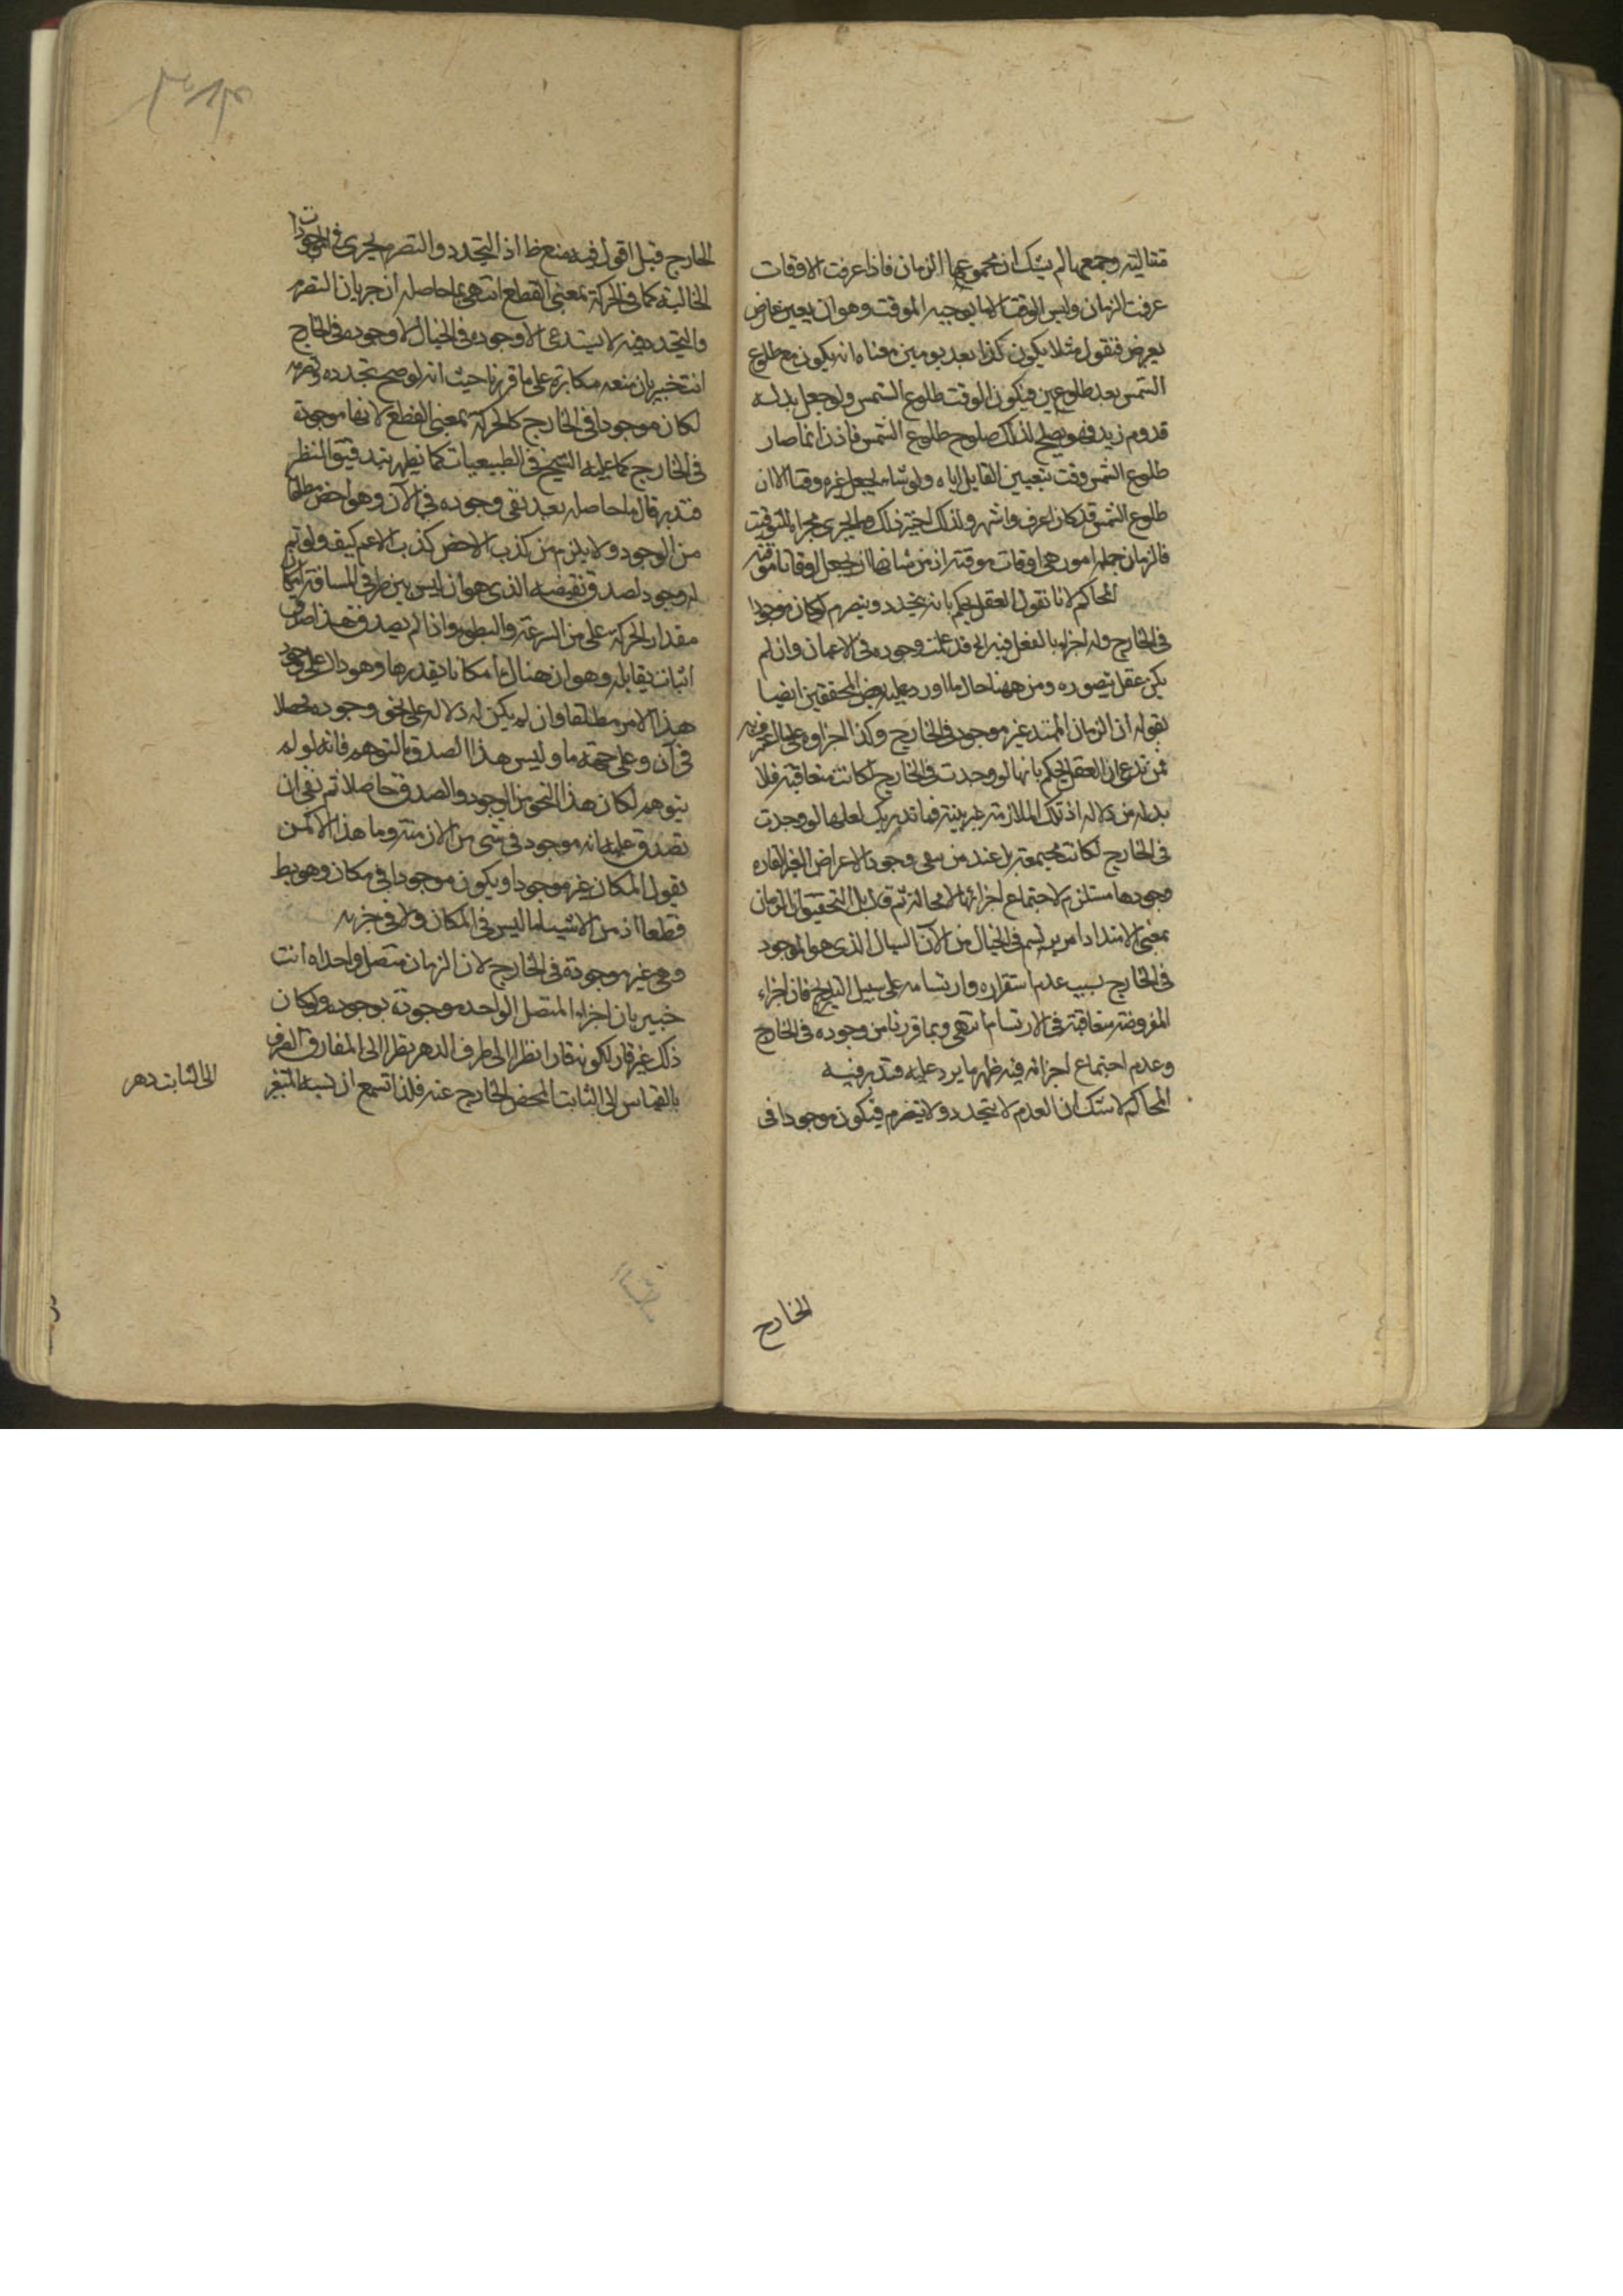 متتالية وجمعها لم يشك ان مجموعها الزمان فاذا عرفت الاوقات
عرفت الزمان وليس الوقت الا ما يوجبه الموقت وهو ان يعين عارض
يعرض فنقول مثلا يكون كذا بعد يومين معناه انه يكون مع طلوع
الشمس بعد طلوعين فيكون الوقت طلوع الشمس ولو جعل بدله
قدوم زيد فهو يصلح لذلك صلوح طلوع الشمس فاذن انما صار
طلوع الشمس وقت بتعيين القايل اياه ولو شاء لجعل غيره وقتا الا ان
طلوع الشمس قد كان اعرف واشهر ولذلك اختير ذلك وما يجرى مجراه للتوقيت
فالزمان جملة امور هى اوقات موقتة او من شانها ان يجعل اوقاتا موقتة
المحاكم لانا نقول العقل يحكم بانه يتجدد ويتصرم لو كان موجودا
فى الخارج وله اجزاء بالفعل فيه اه قد علمت وجوده فى الاعيان وان لم
يكن عقل يتصوره ومن ههنا حال ما اورد عليه بعض المحققين ايضا
بقوله ان الزمان الممتد غير موجود فى الخارج وكذا اجزاوه
فمن ندعى ان العقل يحكم بانها لو وجدت فى الخارج لكانت متعاقبة فلا
بد له من دلالة اذ تلك الملازمة غير بينة فما تدريك لعلها لو وجدت
فى الخارج لكانت مجتمعة بل عند من نفى وجود الاعراض الغير القاره
وجودها مستلزم لاجتماع اجزائها لا محالة ثم قال بل التحقيق ان الزمان
بمعنى الامتداد امر يرتسم فى الخيال من الآن السيال الذى هو الموجود
فى الخارج بسبب عدم استقراره وارتسامه على سبيل التدريج فان اجزاء
المفروضة متعاقبة فى الارتسام انتهى وبما قررنا من وجوده فى الخارج
وعدم اجتماع اجزائه فيه ظهر ما يرد عليه فتدبر فيه
المحاكم لا شك ان العدم لا يتجدد ولا يتصرم فيكون موجودا فى
الخارج
الخارج قيل اقول فيه منع ظ اذ التجدد والتصرم يجرى فى الموجودات
الخالية كما فى الحركة بمعنى القطع انتهى ما حاصله ان جريان التصرم
والتجدد فيه لا يستدعى الا وجوده فى الخيال لا وجوده فى الخارج
انت خبير بان منعه مكابرة على ما قررنا حيث انه لو صح تجدده وتصرمه
لكان موجودا فى الخارج كالحركة بمعنى القطع لانها موجودة
فى الخارج كما عليه الشيخ فى الطبيعيات كما يظهر بتدقيق النظر
فتدبر قال ما حاصله بعد نفى وجوده فى الآن وهو اخص مطلقا
من الوجود ولا يلزم من كذب الاخص كذب الاعم كيف ولو لم
له وجود لصدق نقيضه الذى هو ان ليس بين طرفى المسافة امكان
مقدار الحركة على من السرعة والبطوء واذا لم يصدق هذا صدق
اثبات يقابله وهو ان هناك امكانا يقدرها وهو دال على وجود
هذا الامر مطلقا وان لم يكن له دلالة على نحو وجوده محصلا
فى آن وعلى جهة ما وليس هذا الصدق بالتوهم فانه لو لم
يتوهم لكان هذا النحو من الوجود والصدق حاصلا ثم نفى ان
تصدق عليه انه موجود فى شى من الازمنة وما هذا الا كمن
يقول المكان غير موجودا ويكون موجودا فى مكان وهو بط
قطعا اذ من الاشياء ما ليس فى المكان ولا فى جزءه
وهى غير موجودة فى الخارج لان الزمان متصل واحد اه انت
خبير بان اجزاء المتصل الواحد موجودة بوجوده ولو كان
ذلك غير قار لكونه قارا نظرا الى طرف الدهر نظرا الى المفارق الصرف
بالقياس الى الثابت المحض الخارج عنه فلذا تسمع ان نسبة المتغير
الى الثابت دهر